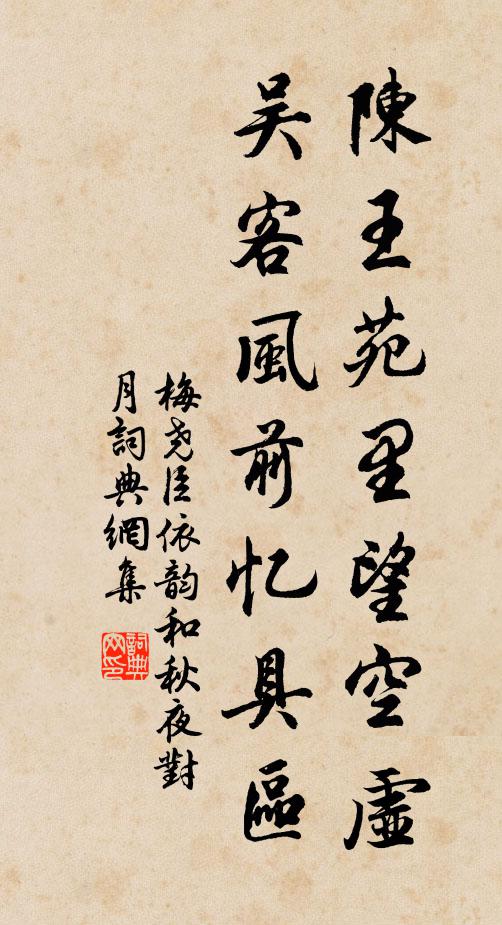 陳王苑里望空虛
吴客風前忆具區
梅尧臣依韵和秋夜對
月詞典網集
詞典网印